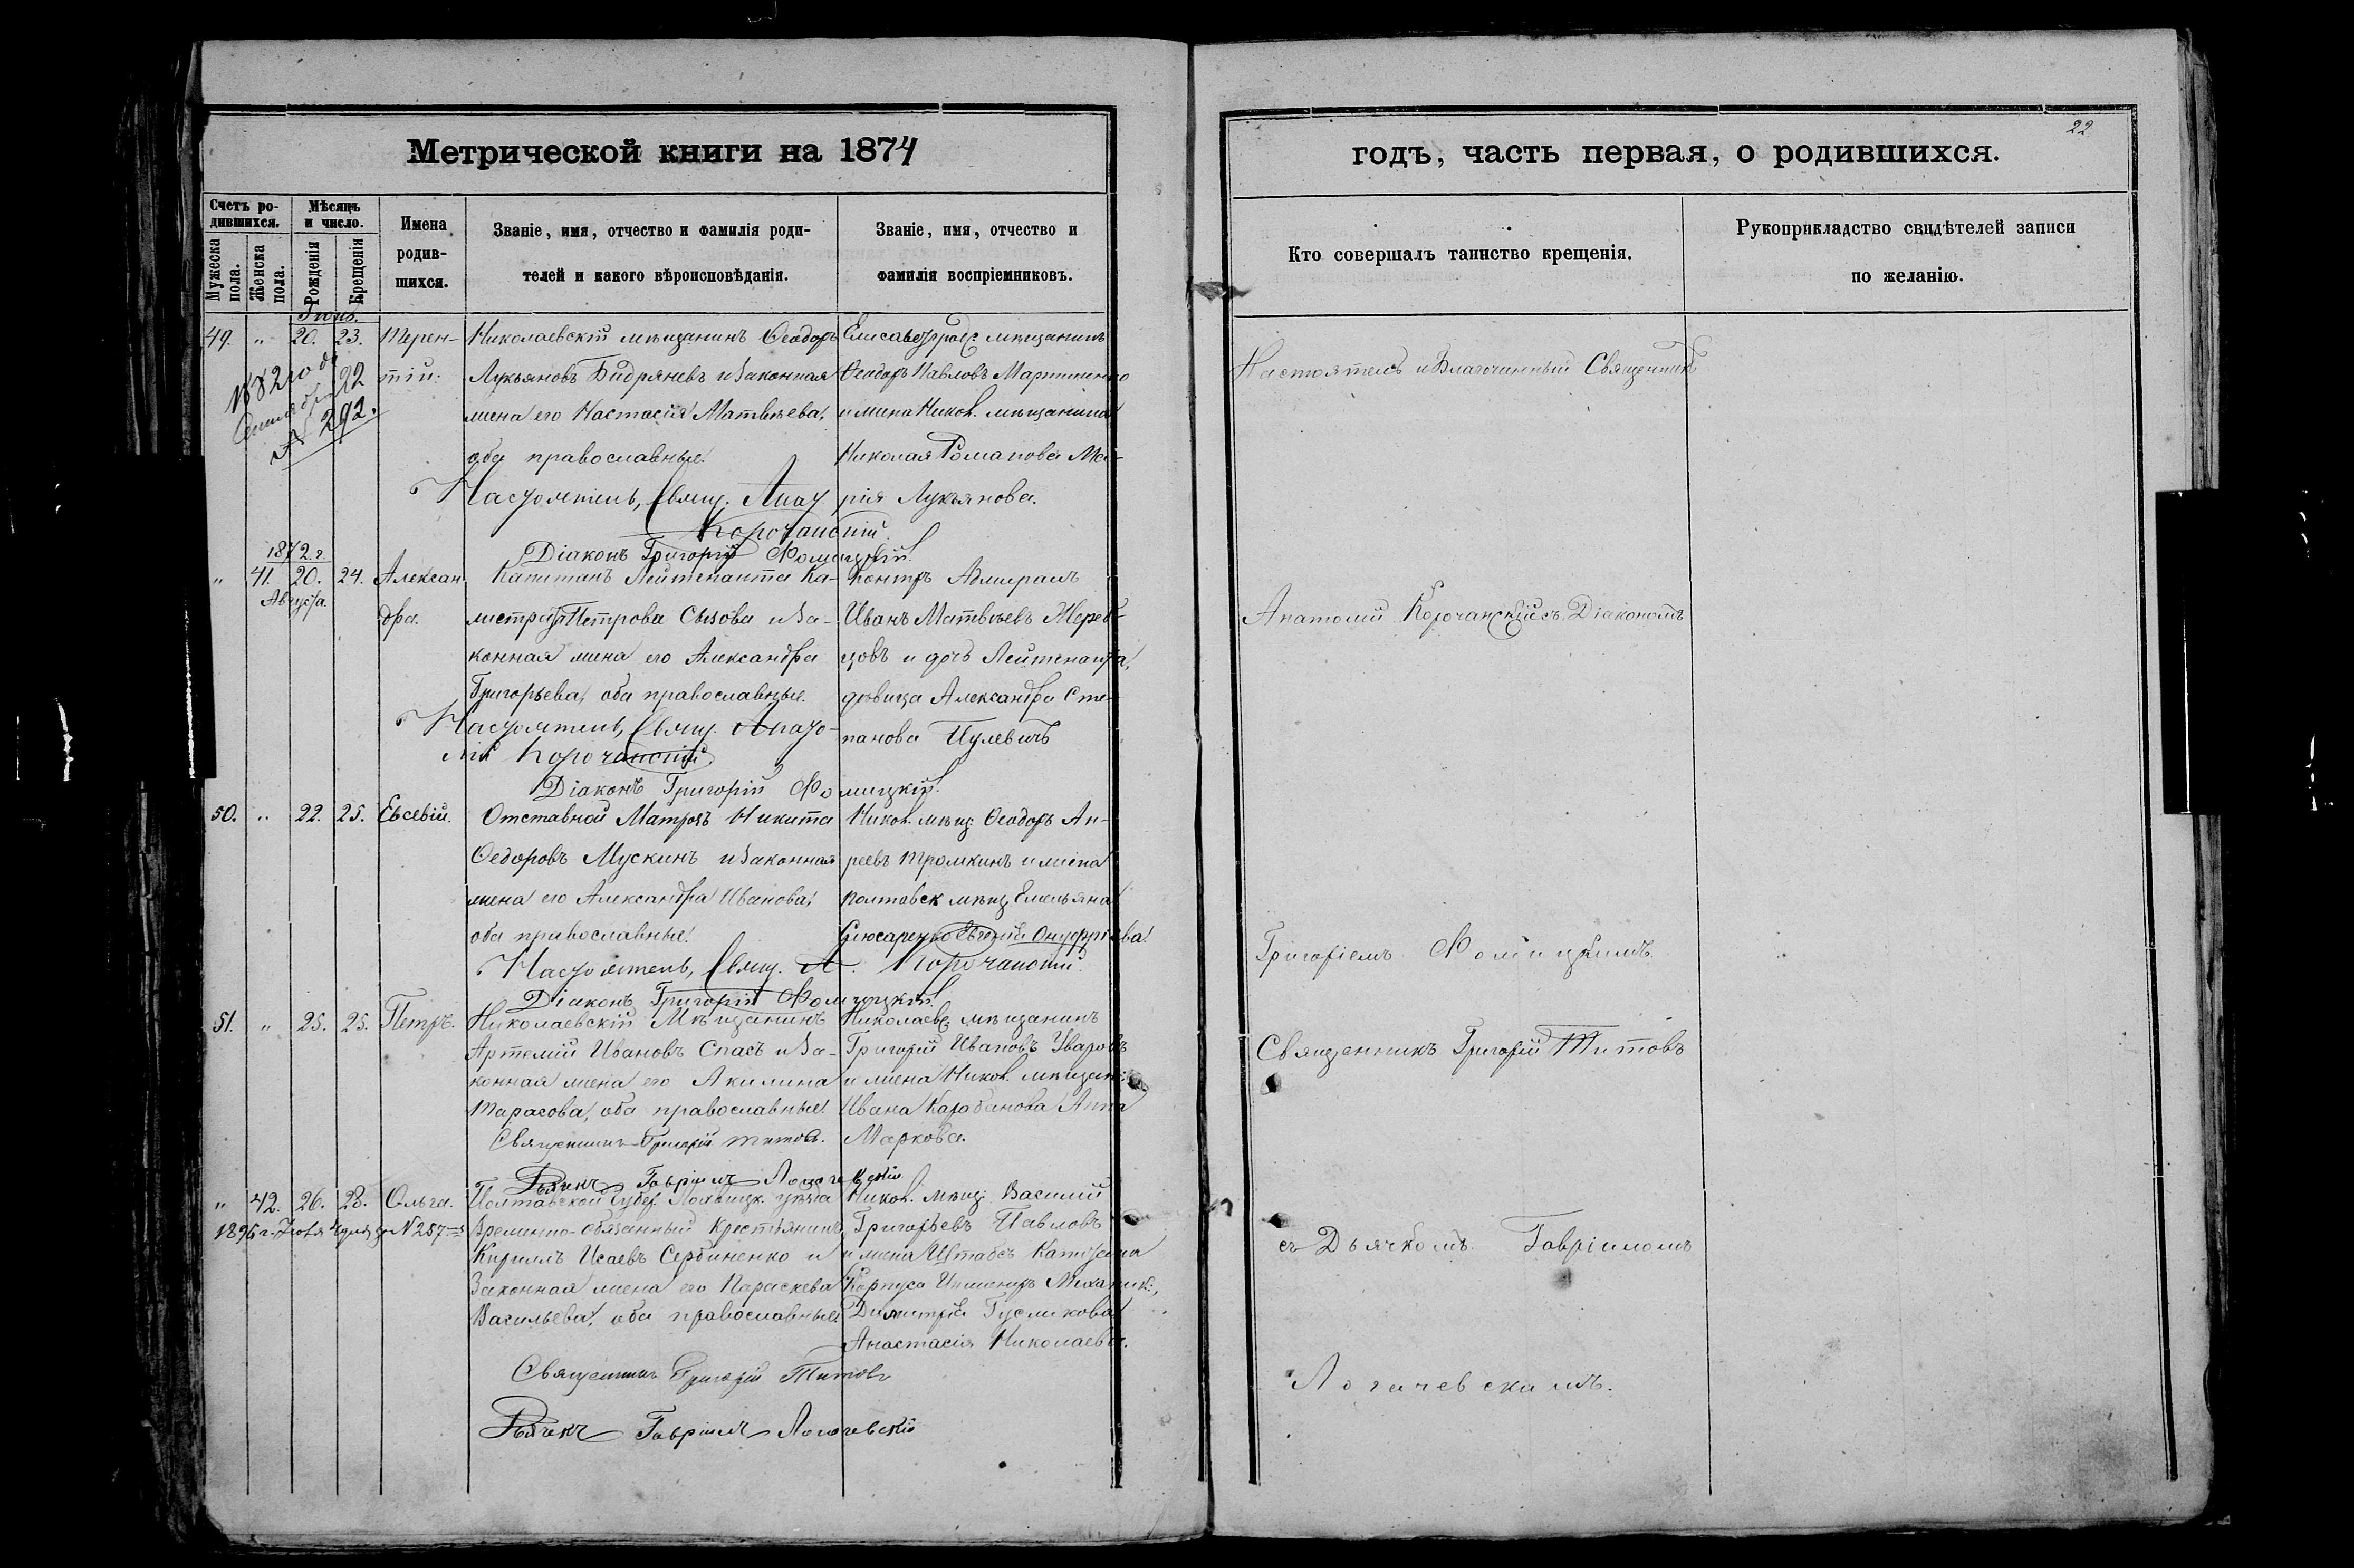 Метрической книги на 1874
Счетъ ро-
дившихся.
Мужеска
пола.
Женска
пола.
Мѣсяцъ
и число.
Рожденія
Крещенія
Имена
родив-
шихся.
Званіе, имя, отчество и фамилія роди-
телей и какого вѣроисповѣданія.
Званіе, имя, отчество и
фамилія воспріемниковъ.
49. " 20. 23. Терен-
тій.
1882 года
22
№ 292.
Николаевскій мѣщанинъ Ѳеодоръ
Лукьяновъ и законная
жена его Настасія Матвѣева,
оба православные.
Елисаветградс. мѣщанинъ
Ѳеодоръ Павловъ Мартиненко
и жена Никол. мѣщанина
Николая Романова Ма-
рія Лукьянова.
Настоятель, Свящ. Анат
Корочанскій
Діаконъ Григорій Фомицкій.
" 41. 20. 24. Алексан
дра.
Августа.
Капитанъ Лейтенанта Ка-
листрата Петрова Сызова и за-
конная жена его Александра
Григорьева, оба православные.
Контръ Адмиралъ
Иванъ Матвѣевъ
цовъ и дочь Лейтенанта,
дѣвица Александра Сте-
панова
Настоятель, Свящ. Анато-
лій Корочанскій
Діаконъ Григорій Фомицкій.
50. " 22. 25. Евсевій.
Отставной Матрозъ Никита
Ѳедоровъ Мускинъ и законная
жена его Александра Иванова,
оба православные.
Никол. мѣщ. Ѳеодоръ Ан-
реевъ Тромкинъ и жена
полтавск мѣщ Емельяна
Слюсаренко Онуфріева.
Настоятель, Свящ. А. Корочанскій.
Діаконъ Григорій Фомицкій.
51. " 25. 25. Петръ.
Николаевскій Мѣщанинъ
Артемій Ивановъ Спасъ и за-
конная жена его Акилина
Тарасова, оба православные.
Николаевс. мѣщанинъ
Григорій Ивановъ Уваровъ
и жена Никол. мѣщан:
Ивана Карабанова Анна
Маркова.
Священникъ Григорій Титовъ.
Дьячекъ Гавріилъ Логачевскій
" 42. 26. 28. Ольга.
Полтавской Губер. Лохвицк. уѣзда
Временно-обязанный Крестьянинъ
Кириллъ Исаевъ Сербиненко и
Законная жена его Параскева
Васильева, оба православные
Никол. мѣщ. Василій
Григорьевъ Павловъ
и жена Штабсъ Капитана
Корпуса Инженеръ Механик:,
Димитрія Гусликова
Анастасія Николаева.
Священникъ Григорій Титовъ
Дьячекъ Гавріилъ Логачевскій
годъ, часть первая, о родившихся.
22
Кто совершалъ таинство крещенія.
Рукоприкладство свидѣтелей записи
по желанію.
Настоятель и Благочинный Священникъ
Анатолій Корочанскій съ Діакономъ
Григоріемъ Фомицкимъ.
Священникъ Григорій Титовъ
съ Дьячкомъ Гавріиломъ
Логачевскимъ.